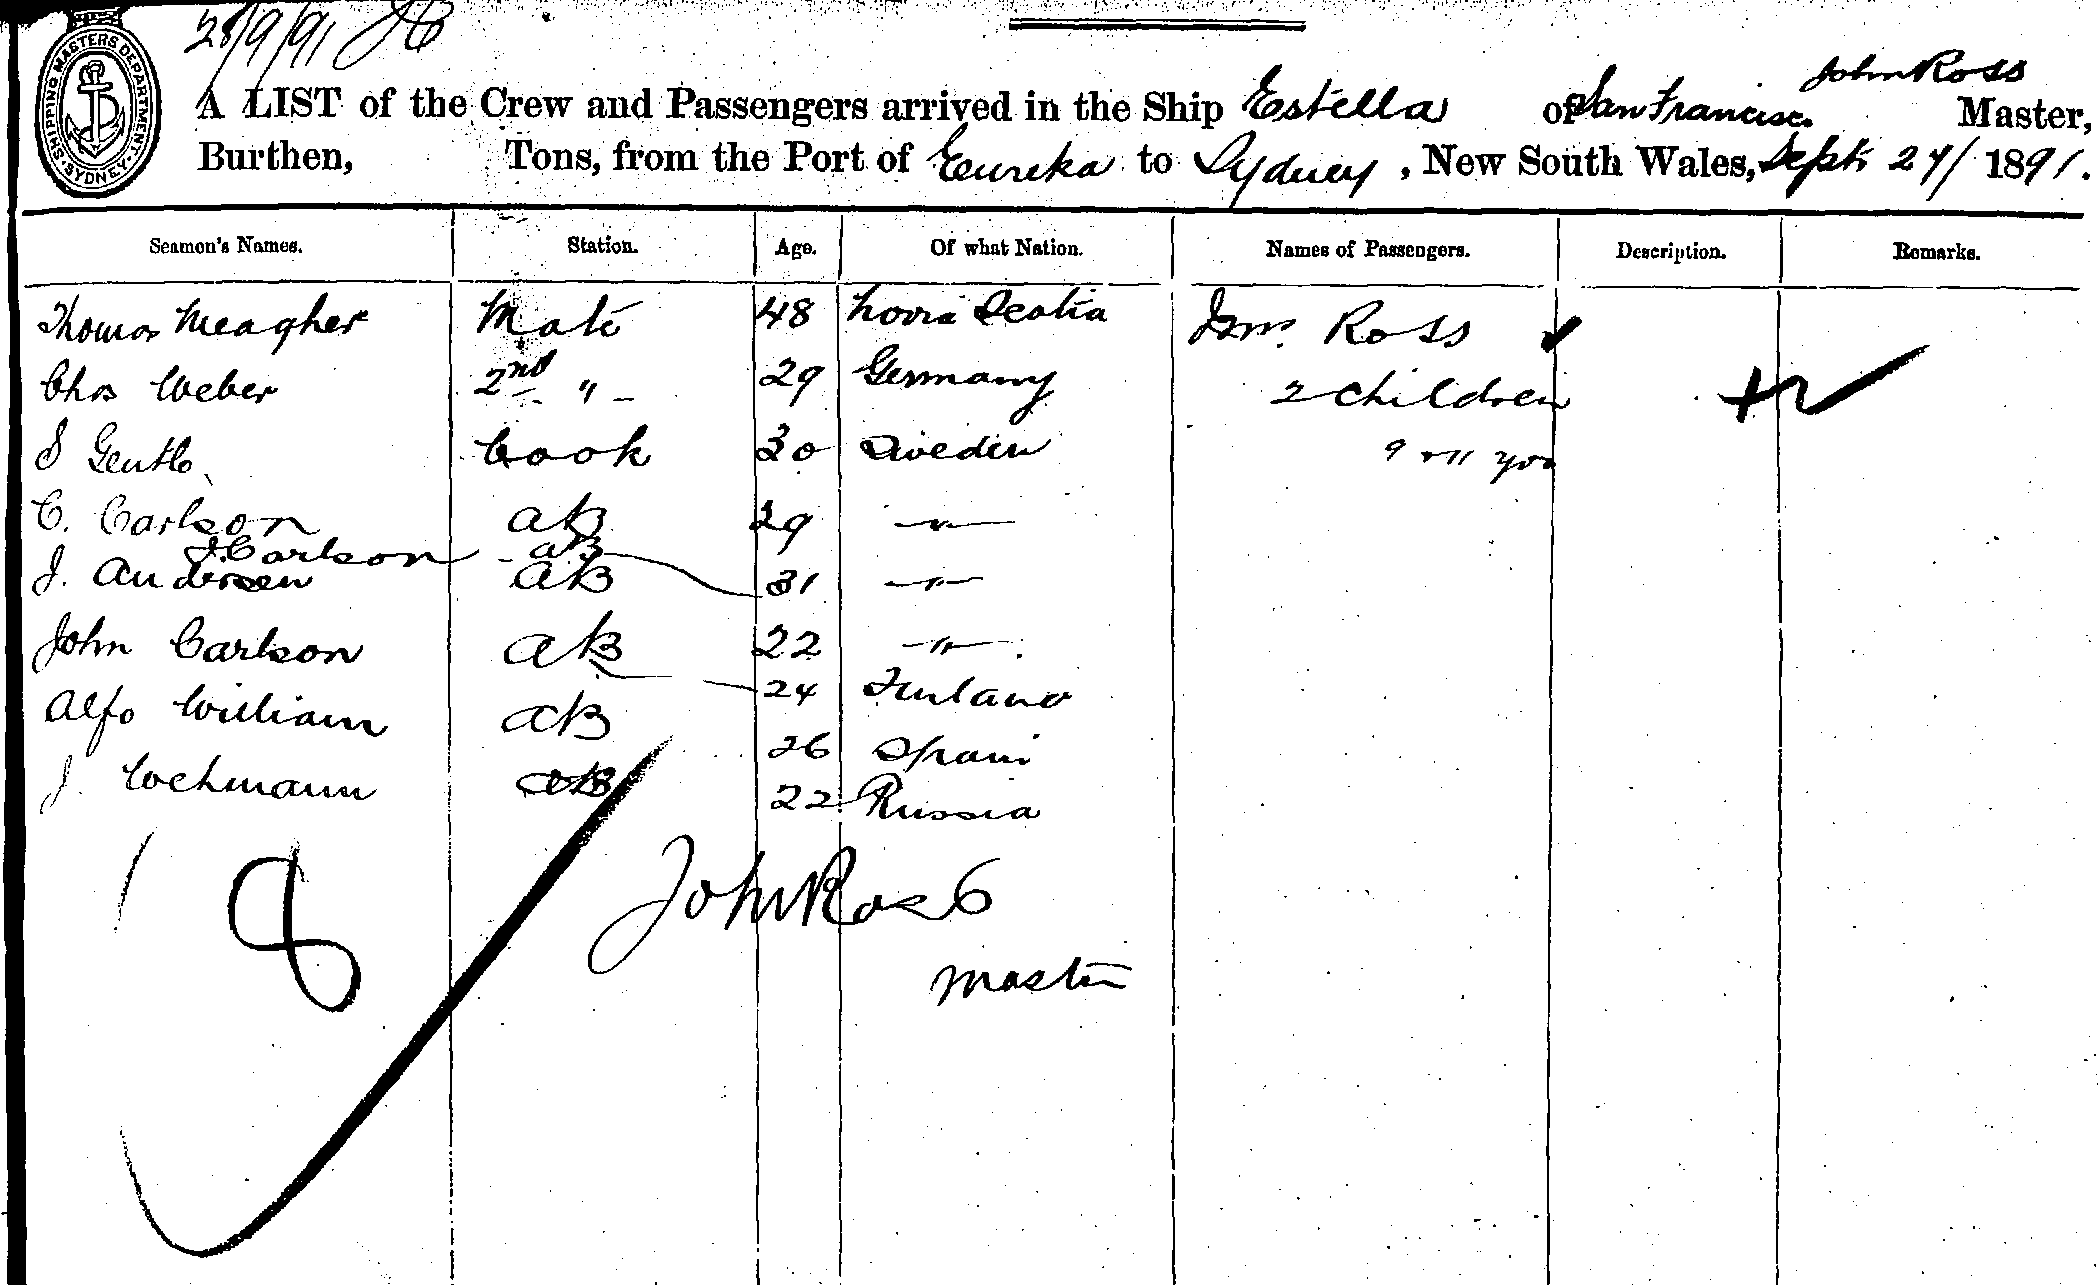 28/9/91 JB
SHIPPING MASTERS DEPARTMENT. SYDNEY
John Ross
A LIST of the Crew and Passengers arrived in the Ship Estella of San Francisco Master,
Burthen, Tons, from the Port of Eeureka to Sydney, New South Wales, Septr 27/ 1891.
Seamen's Names. Station. Age. Of what Nation. Names of Passengers. Description. Remarks.
Thomas Meagher Mate 48 Nova Scotia Ross
Chas Weber 2nd " 29 Germany 2 children
S Gentlo Cook 30 Sweden 9 & 11 yrs
C. Carlson AB 29 "
J. Carlson AB
J. Andersen AB 31 "
John Carlson AB 22 "
Alfo William AB 24 Finland
26 Spain
J. Wehmann AB 22 Russia
8
John Ross
Master